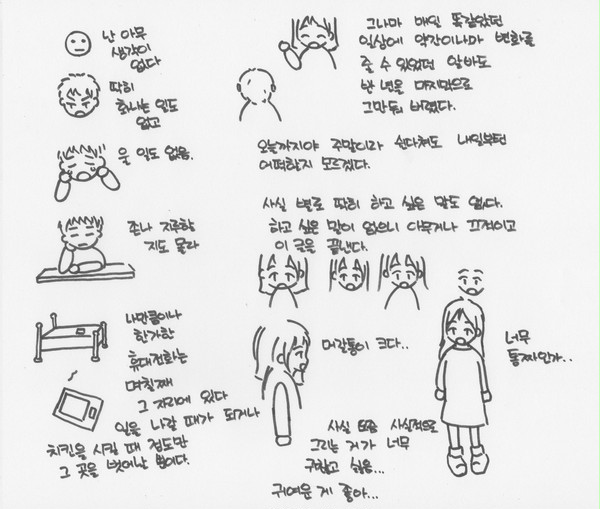 난 아무
생각이
없다
딱히
화나는 일도
없고
울 일도 없음.
존나 지루할
지도 몰라
나만큼이나
한가한
휴대전화는
며칠째
그 자리에 있다
일을 나갈 때가 되거나
치킨을 시킬 때 정도만
그 곳을 벗어날 뿐이다.
그나마 매일 똑같았던
일상에 약간이나마 변화를
줄 수 있었던 알바도
반 년을 마지막으로
그만둬 버렸다.
오늘까지야 주말이라 쉰다쳐도 내일부턴
어떠할지 모르겠다.
사실 별로 딱히 하고 싶은 말도 없다.
하고 싶은 말이 없으니 아무거나 끄적이고
이 글을 끝낸다.
머리통이 크다..
너무
통짜인가..
사실 요즘 사실적으로
그리는 거가 너무
구찮고 싫음...
귀여운 게 좋아...